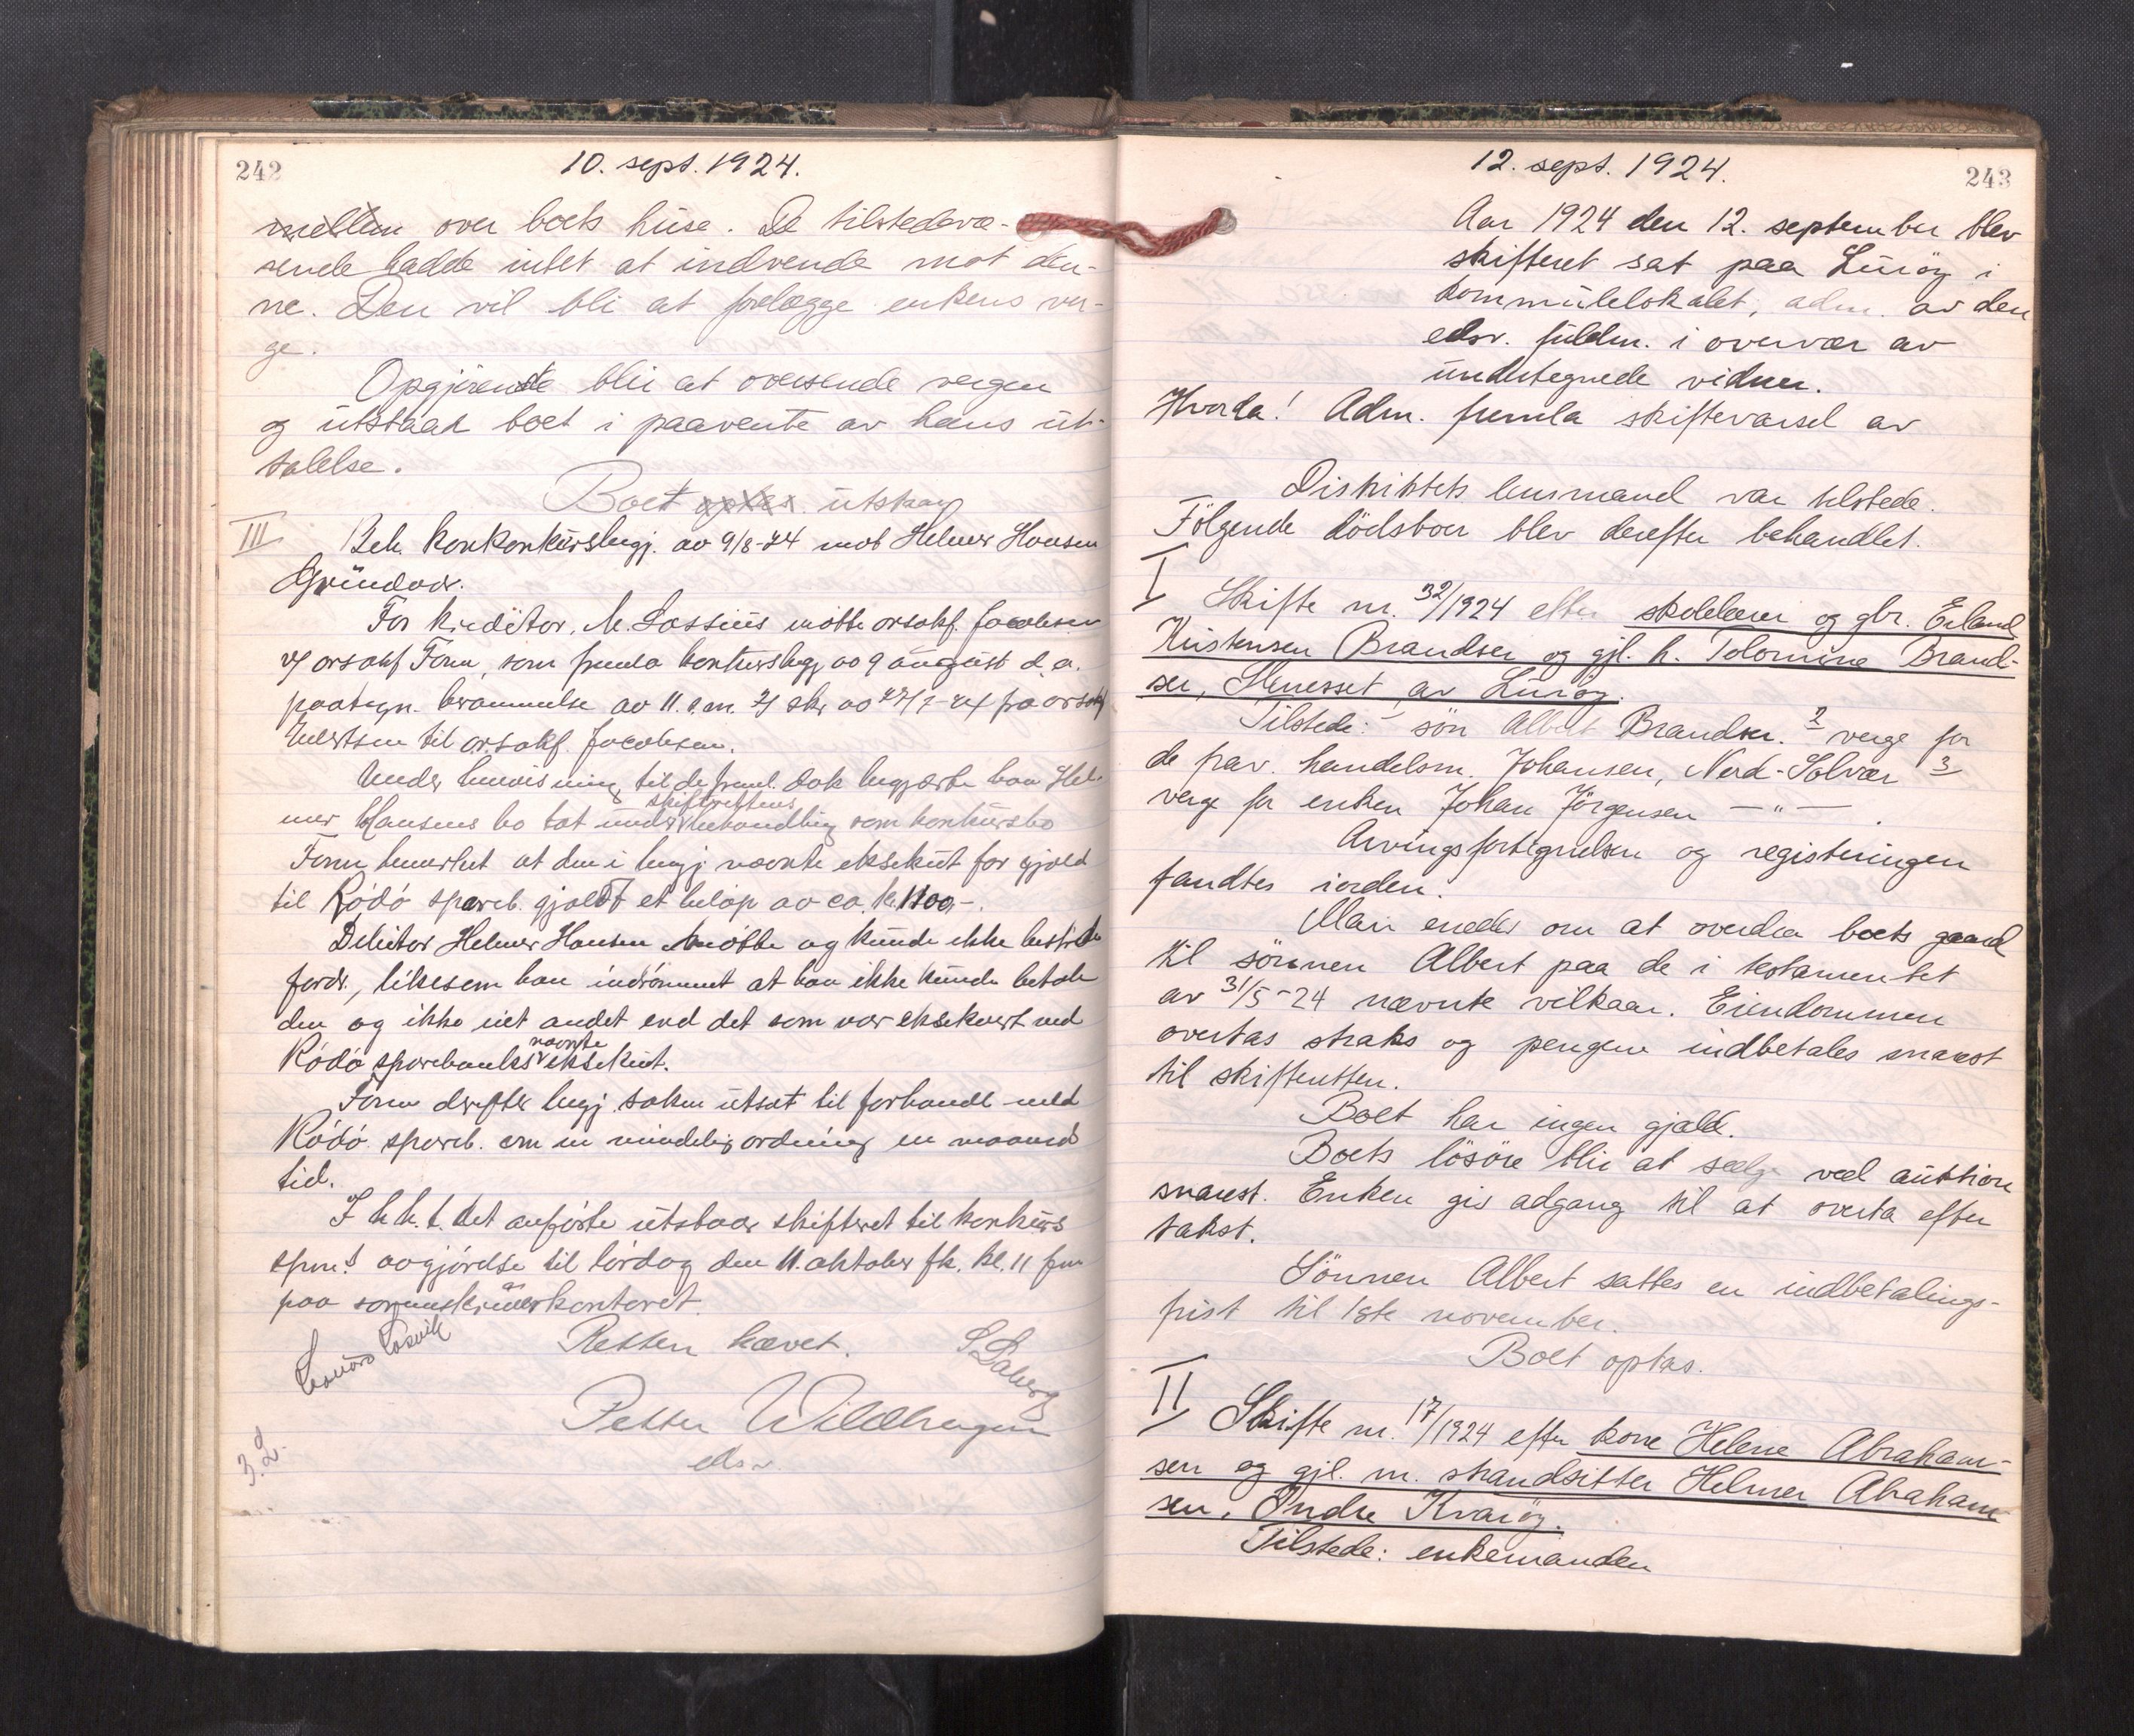 242
10. sept. 1924.
mellem over boets huse. De tilstedevæ-
rende hadde intet at indvende mot den-
ne. Den vil bli at forelægge enkens ver-
ge.
Opgjørende blir at oversende vergen
og utstaar boet i paavente av hans ut-
talelse.
Boet optas. utstaar
III Beh. konkonkursbegj. av 9/8-24 mot Helmer Hansen
For kreditor, M. Lossius møtte orsakf. Jacobsen
v/ orsakf Form, som fremla konkursbegj av 9 august d.a.
paategn. berammelse av 11. s.m. og skr av 27/7-24 fra orsakf
til orsakf. Jacobsen.
Under henvisning til de freml. dok begjærte han Hel-
mer Hansens bo tat under skifterettens behandling som konkursbo
Form bemerket at den i begj. nævnte eksekut for gjæld
til Rödö spareb. gjaldt et beløp av ca. kr. 1100,-.
Debitor Helmer Hansen møtte og kunde ikke bestride
fordr., likesom han indrømmet at han ikke kunde betale
den og ikke eiet andet end det som var eksekvert ved
Rödö sparebanks nævnte eksekut.
Form derefter begj. saken utsat til forhandl med
Rödö spareb. om en mindelig ordning en maaned
tid.
I h. h. t. det anførte utstaar skifteret til konkurs
spm.s avgjørelse til lørdag den 11. oktober fk. kl. 11 fm
paa sorenskriverkontoret.
Retten hævet.
Petter Wildhagen
edsv.
3.2.
12. sept. 1924.
243
Aar 1924 den 12. september blev
skifteret sat paa Luröy i
kommunelokalet, adm. av den
edsv. fuldm. i overvær av
undertegnede vidner.
Hvorda! Adm. fremla skiftevarsel av
Distriktets lensmand var tilstede.
Følgende dödsboer blev derefter behandlet.
I
Skifte nr. 32/1924 efter skolelærer og gbr. Erland
Kristensen Brandser og gjl. h. Tolomine Brand-
ser, Stenesset av Luröy.
Tilstede: søn Albert Brandser. 2 verge for
de frav. handelsm. Johansen, Nord-Solvær 3
verge for enken Johan Jörgensen — " —.
Arvingsfortegnelsen og registreringen
fandtes iorden.
Man enedes om at overdra boets gaard
til sönnen Albert paa de i testamentet
av 31/5-24 nævnte vilkaar. Eiendommen
overtas straks og pengene indbetales snarest
til skifteretten.
Boet har ingen gjæld.
Boets lösöre blir at sælge ved auktion
snarest. Enken gis adgang til at overta efter
takst.
Sönnen Albert sattes en indbetalings-
frist til 1ste november.
Boet optas.
II
Skifte nr. 17/1924 efter kone Helene Abraham-
sen og gjl. m. strandsitter Helmer Abraham
sen, Indre Kvaröy.
Tilstede: enkemanden